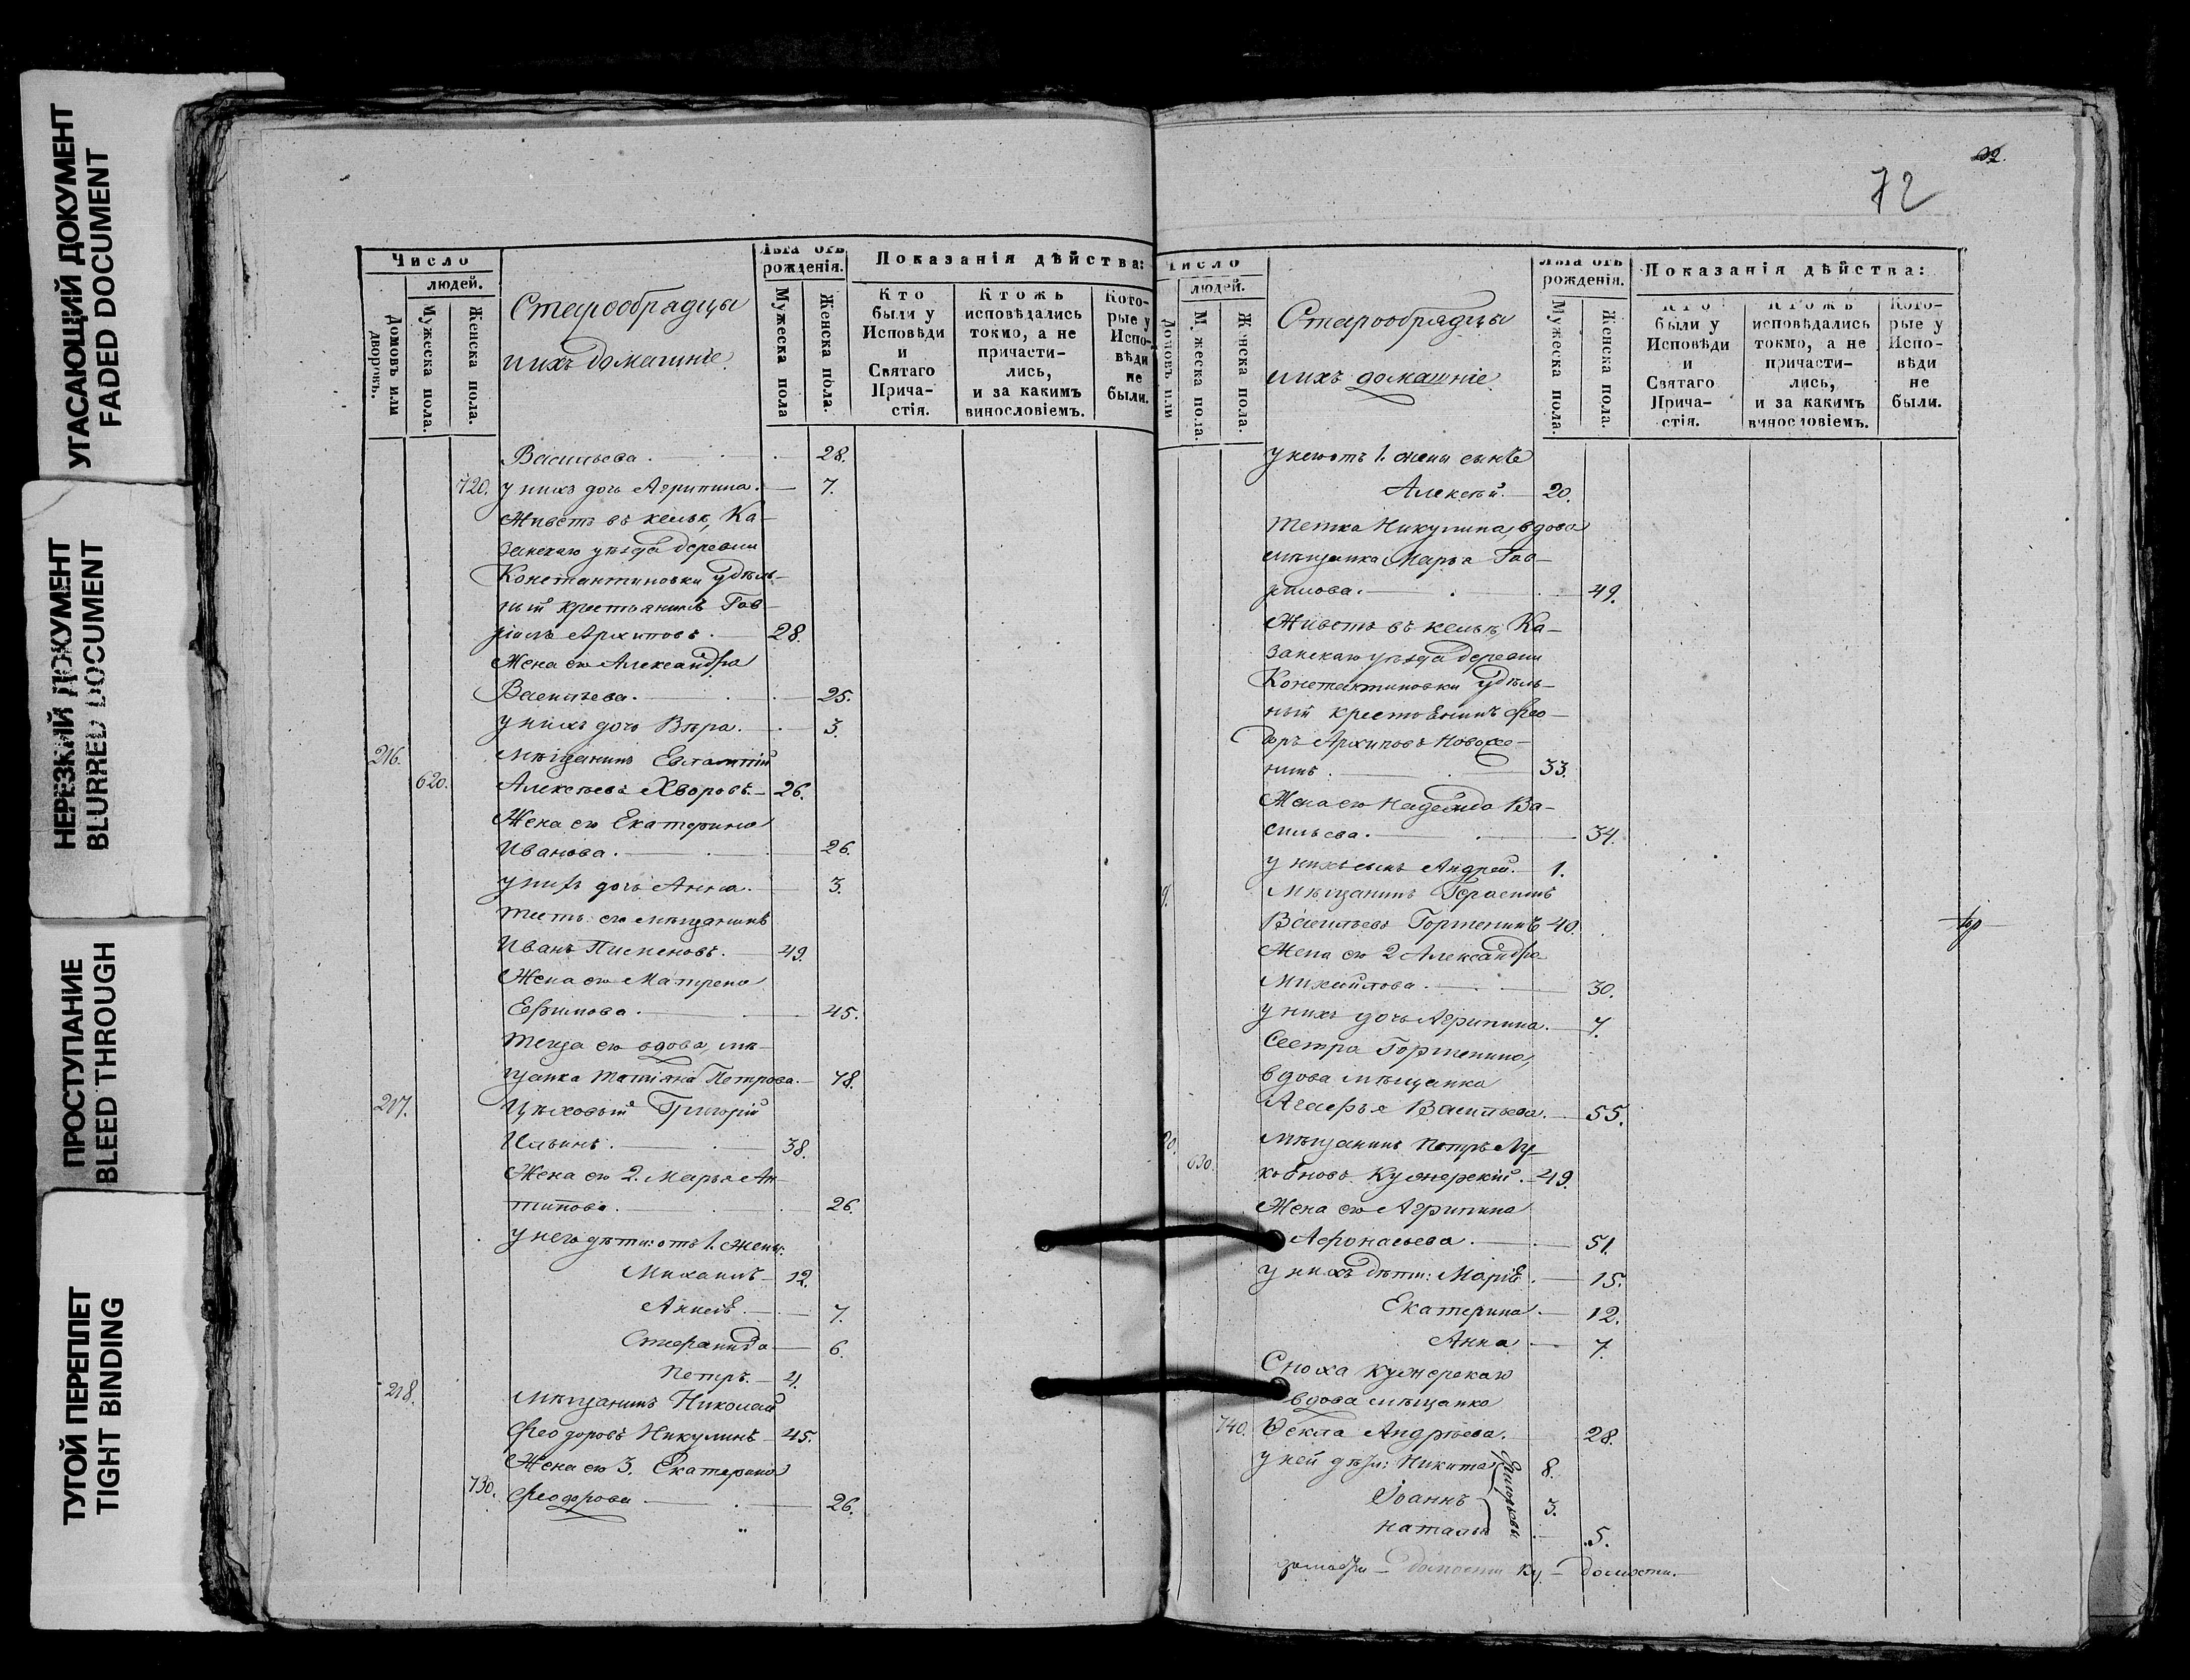 УГАСАЮЩИЙ ДОКУМЕНТ
FADED DOCUMENT
НЕРЕЗКИЙ ДОКУМЕНТ
BLURRED DOCUMENT
ПРОСТУПАНИЕ
BLEED THROUGH
ТУГОЙ ПЕРЕПЛЕТ
TIGHT BINDING
Число
людей.
Домовъ или дворовъ.
Мужеска пола.
Женска пола.
Старообрядцы
и ихъ домашніе.
Лѣта отъ
рожденія.
Мужеска пола
Женска пола.
Показанія дѣйства:
Кто
были у
Исповѣди
и
Святаго
Прича-
стія.
Ктожъ
исповѣдались
токмо, а не
причасти-
лись,
и за какимъ
винословіемъ.
Кото-
рые у
Испо-
вѣди
не
были.
Васильева. 28.
720. у нихъ дочь Агрипина. 7.
Живетъ въ кельѣ, Ка-
занскаго уѣзда деревни
Константиновки удѣль-
ный крестьянинъ Гав-
рiилъ Архиповъ. 28.
Жена его Александра
Васильева. 25.
у нихъ дочь Вѣра. 3.
216. Мѣщанинъ Евлампій
620. Алексѣевъ Хворовъ. 26.
Жена его Екатерина
Иванова. 26.
у нихъ дочь Анна. 3.
тесть его мѣщанинъ
Иванъ Пименовъ. 49.
Жена его Матрена
Ефимова. 45.
теща его вдова, мѣ-
щанка Татіяна Петрова. 78.
217. Цѣховый Григорій
Ильинъ. 38.
Жена его 2. Марья Ан-
типова. 26.
у него дѣти: отъ 1. жены:
Михаилъ 12.
7.
6.
Петръ. 4.
218. Мѣщанинъ Николай
Феодоровъ Никулинъ 45.
Жена его 3. Екатерина
730. Феодорова 26.
32.
72
Число
людей.
Домовъ или
Мужеска пола.
Женска пола.
Старообрядцы
и ихъ домашніе
Лѣта отъ
рожденія.
Мужеска пола.
Женска пола.
Показанія дѣйства:
Кто
были у
Исповѣди
и
Святаго
Прича-
стія.
Ктожъ
исповѣдались
токмо, а не
причасти-
лись,
и за какимъ
винословіемъ.
Кото-
рые у
Испо-
вѣди
не
были.
у него отъ 1. жены сынъ
Алексѣй. 20.
тетка Никулина, вдова
мѣщанка Марья Гав-
рилова. 49.
Живетъ въ кельѣ, Ка-
занскаго уѣзда деревни
Константиновки удѣль-
ный крестьянинъ Фео-
доръ Архиповъ
33.
Жена его Надежда Ва-
сильева. 34.
у нихъ сынъ Андрей. 1.
9. Мѣщанинъ Герасимъ
Васильевъ 40.
Жена его 2 Александра
Михайлова. 30.
у нихъ дочь Агрипина. 7.
Сестра
вдова мѣщанка
Агафья Васильева. 55.
20. Мѣщанинъ Петръ Лу-
630. кьяновъ Кужерскій. 49.
Жена его Агрипина
Афонасьева. 51.
у нихъ дѣти: Марія. 15.
Екатерина. 12.
Анна 7.
Сноха Кужерскаго
вдова мѣщанка
740. Ѳекла Андрѣева. 28.
у ней дѣти: Никита 8.
Іоаннъ 3.
Наталья 5.